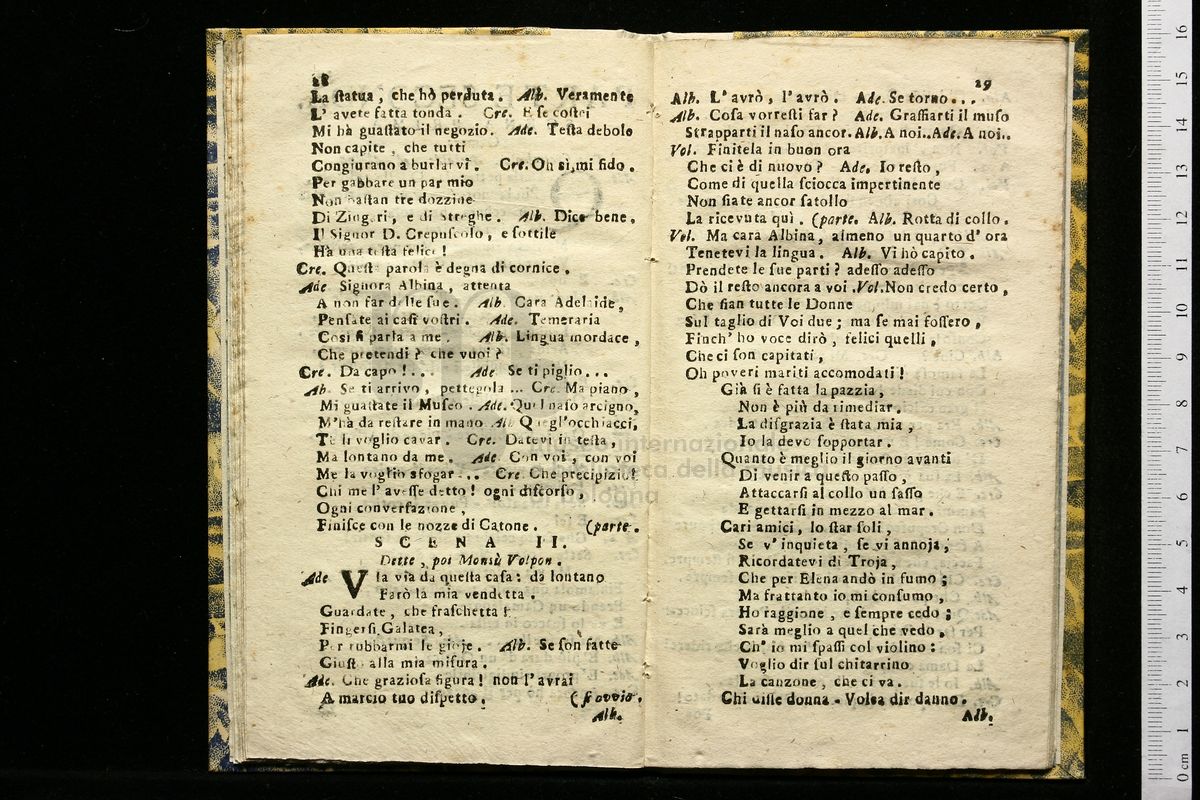 18
La ſtatua, che hò perduta. Alb. Veramente
L' avete fatta tonda. Cre. E ſe coſtei
Mi hà guaſtato il negozio. Ade. Teſta debole
Non capite, che tutti
Congiurano a burlarvi. Cre. Oh sì, mi fido.
Per gabbare un par mio
Non baſtan tre dozzine
Di Zingari, e di ſtreghe. Alb. Dice bene.
Il Signor D. Crepuſcolo, e ſottile
Hà una teſta felice!
Cre. Queſta parola è degna di cornice.
Ade Signora Albina, attenta
A non far delle ſue. Alb. Cara Adelaide,
Penſate ai caſi voſtri. Ade. Temeraria
Così ſi parla a me. Alb. Lingua mordace,
Che pretendi? che vuoi?
Cre. Da capo!... Ade Se ti piglio...
Ah. Se ti arrivo, pettegola ... Cre. Ma piano,
Mi guaſtate il Muſeo. Ade. Quel naſo arcigno,
M'hà da reſtare in mano Alb Quegl'occhiacci,
Te li voglio cavar. Cre. Datevi in teſta,
Ma lontano da me. Ade. Con voi, con voi
Me la voglio sfogar... Cre. Che precipizio!
Chi me l' aveſſe detto! ogni diſcorſo,
Ogni converſazione,
Finiſce con le nozze di Catone. (parte.
SCENA II.
Dette, poi Monsù Volpon.
Ade Via via da queſta caſa: da lontano
Farò la mia vendetta.
Guardate, che fraſchetta!
Fingerſi Galatea,
Per rubbarmi le gioje. Alb. Se ſon fatte
Giuſto alla mia miſura.
Ade. Che grazioſa figura! non l' avrai
A marcio tuo diſpetto. (ſ' avvia.
Alb.
19
Alb. L' avrò, l' avrò. Ade. Se torno...
Alb. Coſa vorreſti far? Ade. Graffiarti il muſo
Strapparti il naſo ancor. Alb. A noi.. Ade. A noi..
Vol. Finitela in buon ora
Che ci è di nuovo? Ade. Io reſto,
Come di quella ſciocca impertinente
Non ſiate ancor ſatollo
La ricevuta quì. (parte. Alb. Rotta di collo.
Vol. Ma cara Albina, almeno un quarto d' ora
Tenetevi la lingua. Alb. Vi hò capito.
Prendete le ſue parti? adeſſo adeſſo
Dò il reſto ancora a voi. Vol. Non credo certo,
Che ſian tutte le Donne
Sul taglio di Voi due; ma ſe mai foſſero,
Finch' ho voce dirò, felici quelli,
Che ci ſon capitati,
Oh poveri mariti accomodati!
Già ſi è fatta la pazzia,
Non è più da rimediar.
La diſgrazia è ſtata mia,
Io la devo ſopportar.
Quanto è meglio il giorno avanti
Di venir a queſto paſſo,
Attaccarſi al collo un ſaſſo
E gettarſi in mezzo al mar.
Cari amici, lo ſtar ſoli,
Se v' inquieta, ſe vi annoja,
Ricordatevi di Troja,
Che per Elena andò in fumo;
Ma frattanto io mi conſumo,
Ho raggione, e ſempre cedo;
Sarà meglio a quel che vedo,
Ch' io mi ſpaſſi col violino:
Voglio dir ſul chitarrino
La canzone, che ci va.
Chi diſſe donna. Volea dir danno.
Alb.